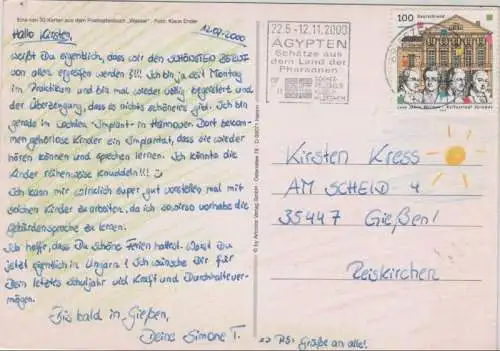 Eine von 30 Karten aus dem Postkartenbuch „Wasser“ Foto: Klaus Ender
12.09.2000
Hallo Kirsten,
weißt Du eigentlich, dass wir den SCHÖNSTEN BERUF
von allen ergreifen werden?!!! Ich bin ja seit Montag
im Praktikum und bis mal wieder völlig begeistert und
der Überzeugung, dass es nichts schöneres gibt. Ich bin
gerade im Cochlea-Implant- in Hannover. Dort bekom-
men gehörlose Kinder ein Implantat, dass sie wieder
hören können und sprechen lernen. Ich könnte die
Kinder reihenweise knuddeln!!!
Ich kann mir wirklich super gut vorstellen mal mit
solchen Kinder zu arbeiten, da ich sowieso vorhabe die
Gebärdensprache zu lernen.
Ich hoffe, dass Du schöne Ferien hattest. Warst Du
jetzt eigentlich in Ungarn? Ich wünsche Dir für
Dein letztes Schuljahr viel Kraft und Durchhaltever-
mögen.
Bis bald in Gießen,
Deine Simone T.
22.5 - 12.11.2000
ÄGYPTEN
Schätze aus
dem Land der
Pharaonen
100
Deutschland
Kirsten Kress
AM SCHEID 4
35447 Gießen!
Reiskirchen
PS: Grüße an alle!